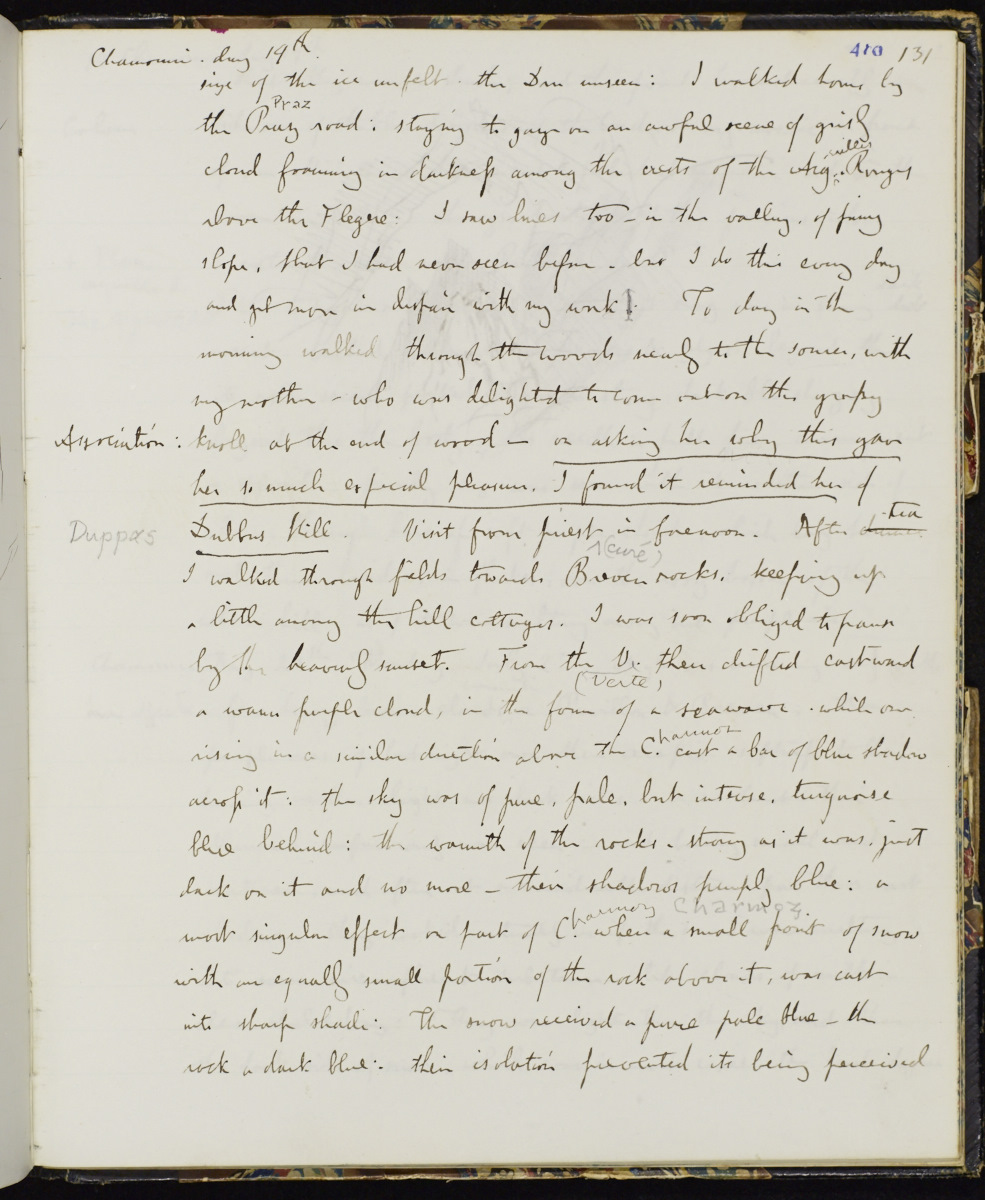 Chamouni. Aug 19th. 410 131
size of the ice unfelt. the Dru unseen: I walked home by
Praz
the Praz road: staying to gaze on an awful scene of grisly
cloud foaming in darkness among the crests of the Aiguilles Rouges
above the Flegere: I saw lines too - in the valley, of piny
slope, that I had never seen before - but I do this every day
and get more in despair with my work. To day in the
morning walked through the woods nearly to the source, with
my mother - who was delighted to come out on the grassy
Association: knoll at the end of wood - on asking her why this gave
her so much especial pleasure, I found it reminded her of
Duppas Dubbus Hill. Visit from priest in forenoon. After dinner tea
(curé)
I walked through fields towards Breven rocks, keeping up
a little among the hill cottages. I was soon obliged to pause
by the heavenly sunset. From the V. there drifted eastward
(Verte)
a warm purple cloud, in the form of a seawave. while one
rising in a similar direction above the C.harmoz cast a bar of blue shadow
across it: the sky was of pure, pale, but intense, turquoise
blue behind: the warmth of the rocks - strong as it was, just
dark on it and no more - their shadows purply blue: a
Charmoz
most singular effect on part of C.harmoz when a small point of snow
with an equally small portion of the rock above it, was cast
into sharp shade: The snow received a pure pale blue - the
rock a dark blue: their isolation prevented its being perceived